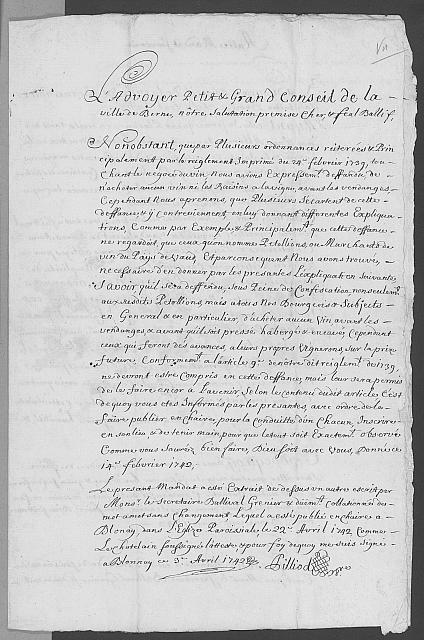 L'Advoyer Petit & Grand Conseil de la
ville de Berne, nôtre Salutation premise Cher, & feal Ballif.
Nonobstant, que par Plusieurs ordonnances reiterées & Prin
cipalement par le réglement Imprimé du 24e. febvrier 1739, tou-
chant le negoce du vin, Nous avions Expressemt. deffandu, de
n'achéter aucun vin ni les Raisins a la vigne, avant les vendanges.
Cependant Nous aprenons, que Plusieurs S'écartent de cette
deffance, & y contreviennent en luy donnant differentes Expliqua
tions, Comme par Exemple, & Principalemt. que cette deffance
ne regardoit que ceux qu'on nomme Petollions, ou Marchands de
vin du Païs de Vaud, Et parce que quand Nous avons trouvé
necessaire d'en donner par les presantes l'Explication suivante,
Savoir qu'il sera deffendu, sous Peine de Confiscation, non seulemt.
aux susdits Petollions, mais a tous Nos Bourgeois & Subjects
en General & en particulier, d'achéter aucun Vin avant les
vendanges & avant qu'il soit pressé, habergé & encavé, Cependant
ceux qui feront des avances a leurs propres Vignerons sur la prise
future, Conformemt. a l'article 9e. de nôtre dit reiglemt. de 1739,
ne devront estre Compris en cette deffance, mais leur sera permis
de les faire encor à l'avenir, Selon le contenu dudit article. C'est
de quoy vous estes Informés par les presantes, avec ordre de la
faire publier en Chaire, pour la Conduitte d'un Chacun, Inscrire
en son lieu, & de tenir main, pour que le tout soit Exactemt. observé
Comme vous Saurez bien faire, Dieu soit avec Vous, Donné ce
14e. febvrier 1742,
Le present Mandat a esté Extrait de dessus un autre escrit par
Monsr. le Secretaire Ballival Grenier & düemt. collationné
mot a mot sans changement, Lequel a esté publié en chaire a
Blonay, dans l'Eglise Paroissiale, le 22e. Avril 1742 Comme
Le Chatelain soussigné l'atteste & pour foy de quoy me suis signé
a Blonnay ce 3e. Avril 1742
Pilliod